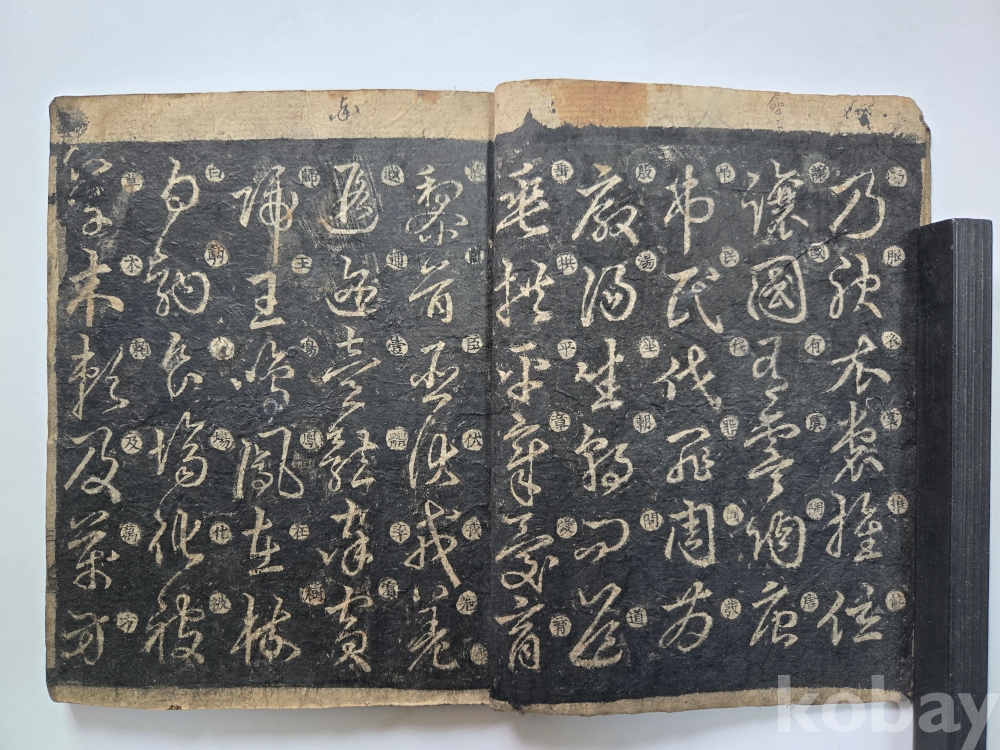 乃服衣裳推位
讓國有虞陶唐
弔民伐罪周發
殷湯坐朝問道
垂拱平章愛育
黎首臣伏戎羌
遐邇壹體率賓
歸王鳴鳳在樹
白駒食場化被
草木賴及萬方
kobay